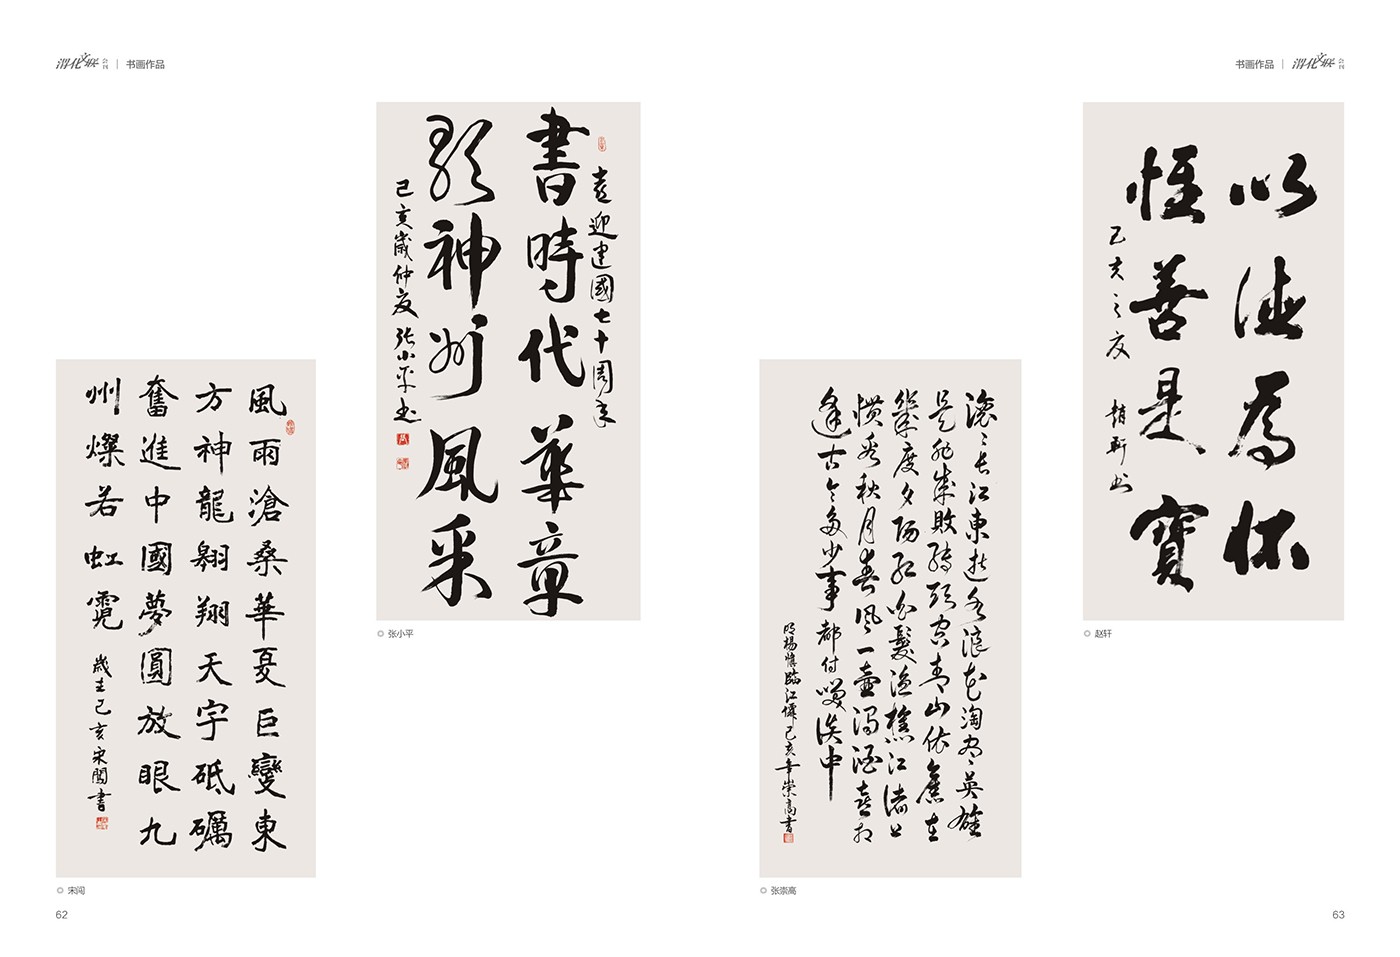 渭化文联 会刊 | 书画作品
书画作品 | 渭化文联 会刊
喜迎建國七十周年
書時代華章
神州風采
己亥歲仲夏 张小平书
張小平
風雨滄桑華夏巨變東
方神龍翱翔天宇砥礪
奮進中國夢圓放眼九
州燦若虹霓
歲在己亥宋闖書
宋闯
62
以德為懷
惟善是寶
己亥之夏 趙軒书
赵轩
滚〻長江東逝水浪花淘盡英雄
是非成敗轉頭空青山依舊在
幾度夕陽紅白髮漁樵江渚上
慣看秋月春風一壺濁酒喜相
逢古今多少事都付笑談中
明楊慎臨江僊己亥年崇高書
张崇高
63